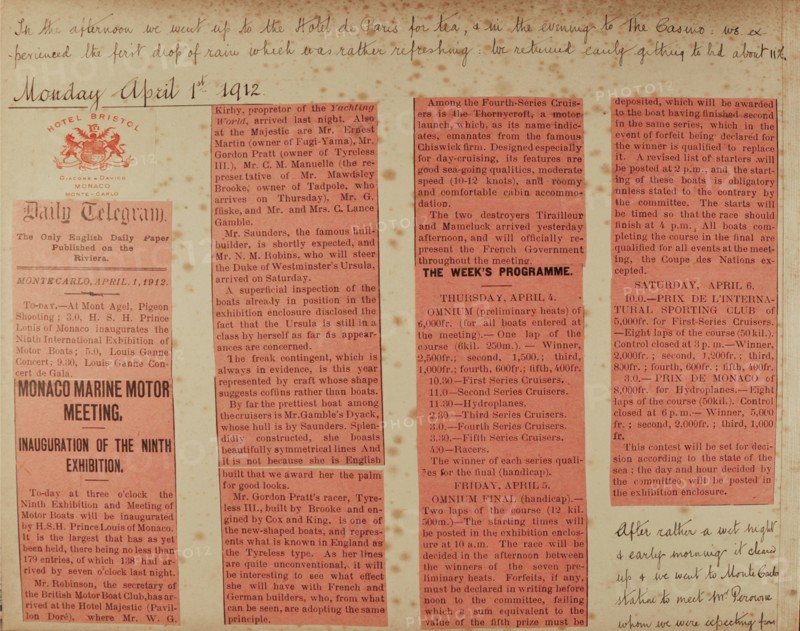 In the afternoon we went up to the Hotel de Paris for tea, & in the evening to The Casino. we ex-
-perienced the first drop of rain which was rather refreshing. We returned early getting to bed about 11 .
Monday April 1st 1912
HOTEL BRISTOL
MONACO
MONTE-CARLO
Daily Telegram.
The Only English Daily Paper
Published on the
Riviera.
MONTECARLO, APRIL. 1, 1912.
To-DAY.—At Mont Agel, Pigeon
Shooting; 3.0, H. S. H. Prince
Louis of Monaco inaugurates the
Ninth International Exhibition of
Motor Boats; 5.0, Louis Ganne
Concert; 9.30, Louis Ganne Con-
cert de Gala.
MONACO MARINE MOTOR
MEETING.
INAUGURATION OF THE NINTH
EXHIBITION.
To-day at three o'clock the
Ninth Exhibition and Meeting of
Motor Boats will be inaugurated
by H.S.H. Prince Louis of Monaco.
It is the largest that has as yet
been held, there being no less than
179 entries, of which 138 had ar-
rived by seven o'clock last night.
Mr. Robinson, the secretary of
the British Motor Boat Club, has ar-
rived at the Hotel Majestic (Pavil-
lon Doré), where Mr. W. G.
Kirby, propretor of the Yachting
World, arrived last night. Also
at the Majestic are Mr. Ernest
Martin (owner of Fugi-Yama), Mr.
Gordon Pratt (owner of Tyreless
III.), Mr. C. M. Manuelle (the re-
presentative of Mr. Mawdsley
Brooke, owner of Tadpole, who
arrives on Thursday), Mr. G.
fuske, and Mr. and Mrs. C. Lance
Gamble.
Mr. Saunders, the famous hull-
builder, is shortly expected, and
Mr. N. M. Robins, who will steer
the Duke of Westminster's Ursula,
arrived on Saturday.
A superficial inspection of the
boats already in position in the
exhibition enclosure disclosed the
fact that the Ursula is still in a
class by herself as far as appear-
ances are concerned.
The freak contingent, which is
always in evidence, is this year
represented by craft whose shape
suggests coffins rather than boats.
By far the prettiest boat among
the cruisers is Mr. Gamble's Dyack,
whose hull is by Saunders. Splen-
didly constructed, she boasts
beautifully symmetrical lines And
it is not because she is English
built that we award her the palm
for good looks.
Mr. Gordon Pratt's racer, Tyre-
less III., built by Brooke and en-
gined by Cox and King, is one of
the new-shaped boats, and repres-
ents what is known in England as
the Tyreless type. As her lines
are quite unconventional, it will
be interesting to see what effect
she will have with French and
German builders, who, from what
can be seen, are adopting the same
principle.
Among the Fourth-Series Cruis-
ers is the Thornycroft, a motor
launch, which, as its name indic-
ates, emanates from the famous
Chiswick firm. Designed especially
for day-cruising, its features are
good sea-going qualities, moderate
speed (10-12 knots), and roomy
and comfortable cabin accommo-
dation.
The two destroyers Tirailleur
and Mameluck arrived yesterday
afternoon, and will officially re-
present the French Government
throughout the meeting.
THE WEEK'S PROGRAMME.
THURSDAY, APRIL 4.
OMNIUM (preliminary heats) of
6,000fr. (for all boats entered at
the meeting).— One lap of the
course (6kil. 250m.).— Winner,
2,500fr.; second, 1,500.; third,
1,000fr.; fourth, 600fr.; fifth, 400fr.
10.30—First Series Cruisers.
11.0—Second Series Cruisers.
11.30—Hydroplanes.
2.30—Third Series Cruisers.
3.0—Fourth Series Cruisers.
3.30.—Fifth Series Cruisers.
4.0—Racers.
The winner of each series quali-
fies for the final (handicap).
FRIDAY, APRIL 5.
OMNIUM FINAL (handicap).—
Two laps of the course (12 kil.
500m.)—The starting times will
be posted in the exhibition enclos-
ure at 10 a.m. The race will be
decided in the afternoon between
the winners of the seven pre-
liminary heats. Forfeits, if any,
must be declared in writing before
noon to the committee, failing
which a sum equivalent to the
value of the fifth prize must be
deposited, which will be awarded
to the boat having finished second
in the same series, which in the
event of forfeit being declared for
the winner is qualified to replace
it. A revised list of starters will
be posted at 2 p.m., and the start-
ing of these boats is obligatory
unless stated to the contrary by
the committee. The starts will
be timed so that the race should
finish at 4 p.m. All boats com-
pleting the course in the final are
qualified for all events at the meet-
ing, the Coupe des Nations ex-
cepted.
SATURDAY, APRIL 6.
10.0.—PRIX DE L'INTERNA-
TIONAL SPORTING CLUB of
5,000fr. for First-Series Cruisers.
—Eight laps of the course (50 kil.).
Control closed at 3 p. m.—Winner,
2,000fr.; second, 1,200fr.; third,
800fr.; fourth, 600fr.; fifth, 400fr.
3.0.— PRIX DE MONACO of
8,000fr. for Hydroplanes.—Eight
laps of the course (50kil.). Control
closed at 6 p.m.— Winner, 5,000
fr.; second, 2,000fr.; third, 1,000
fr.
This contest will be set for deci-
sion according to the state of the
sea; the day and hour decided by
the committee will be posted in
the exhibition enclosure.
After rather a wet night
& early morning it cleared
up & we went to Monte Carlo
station to meet Mr Perowne
whom we were expecting from